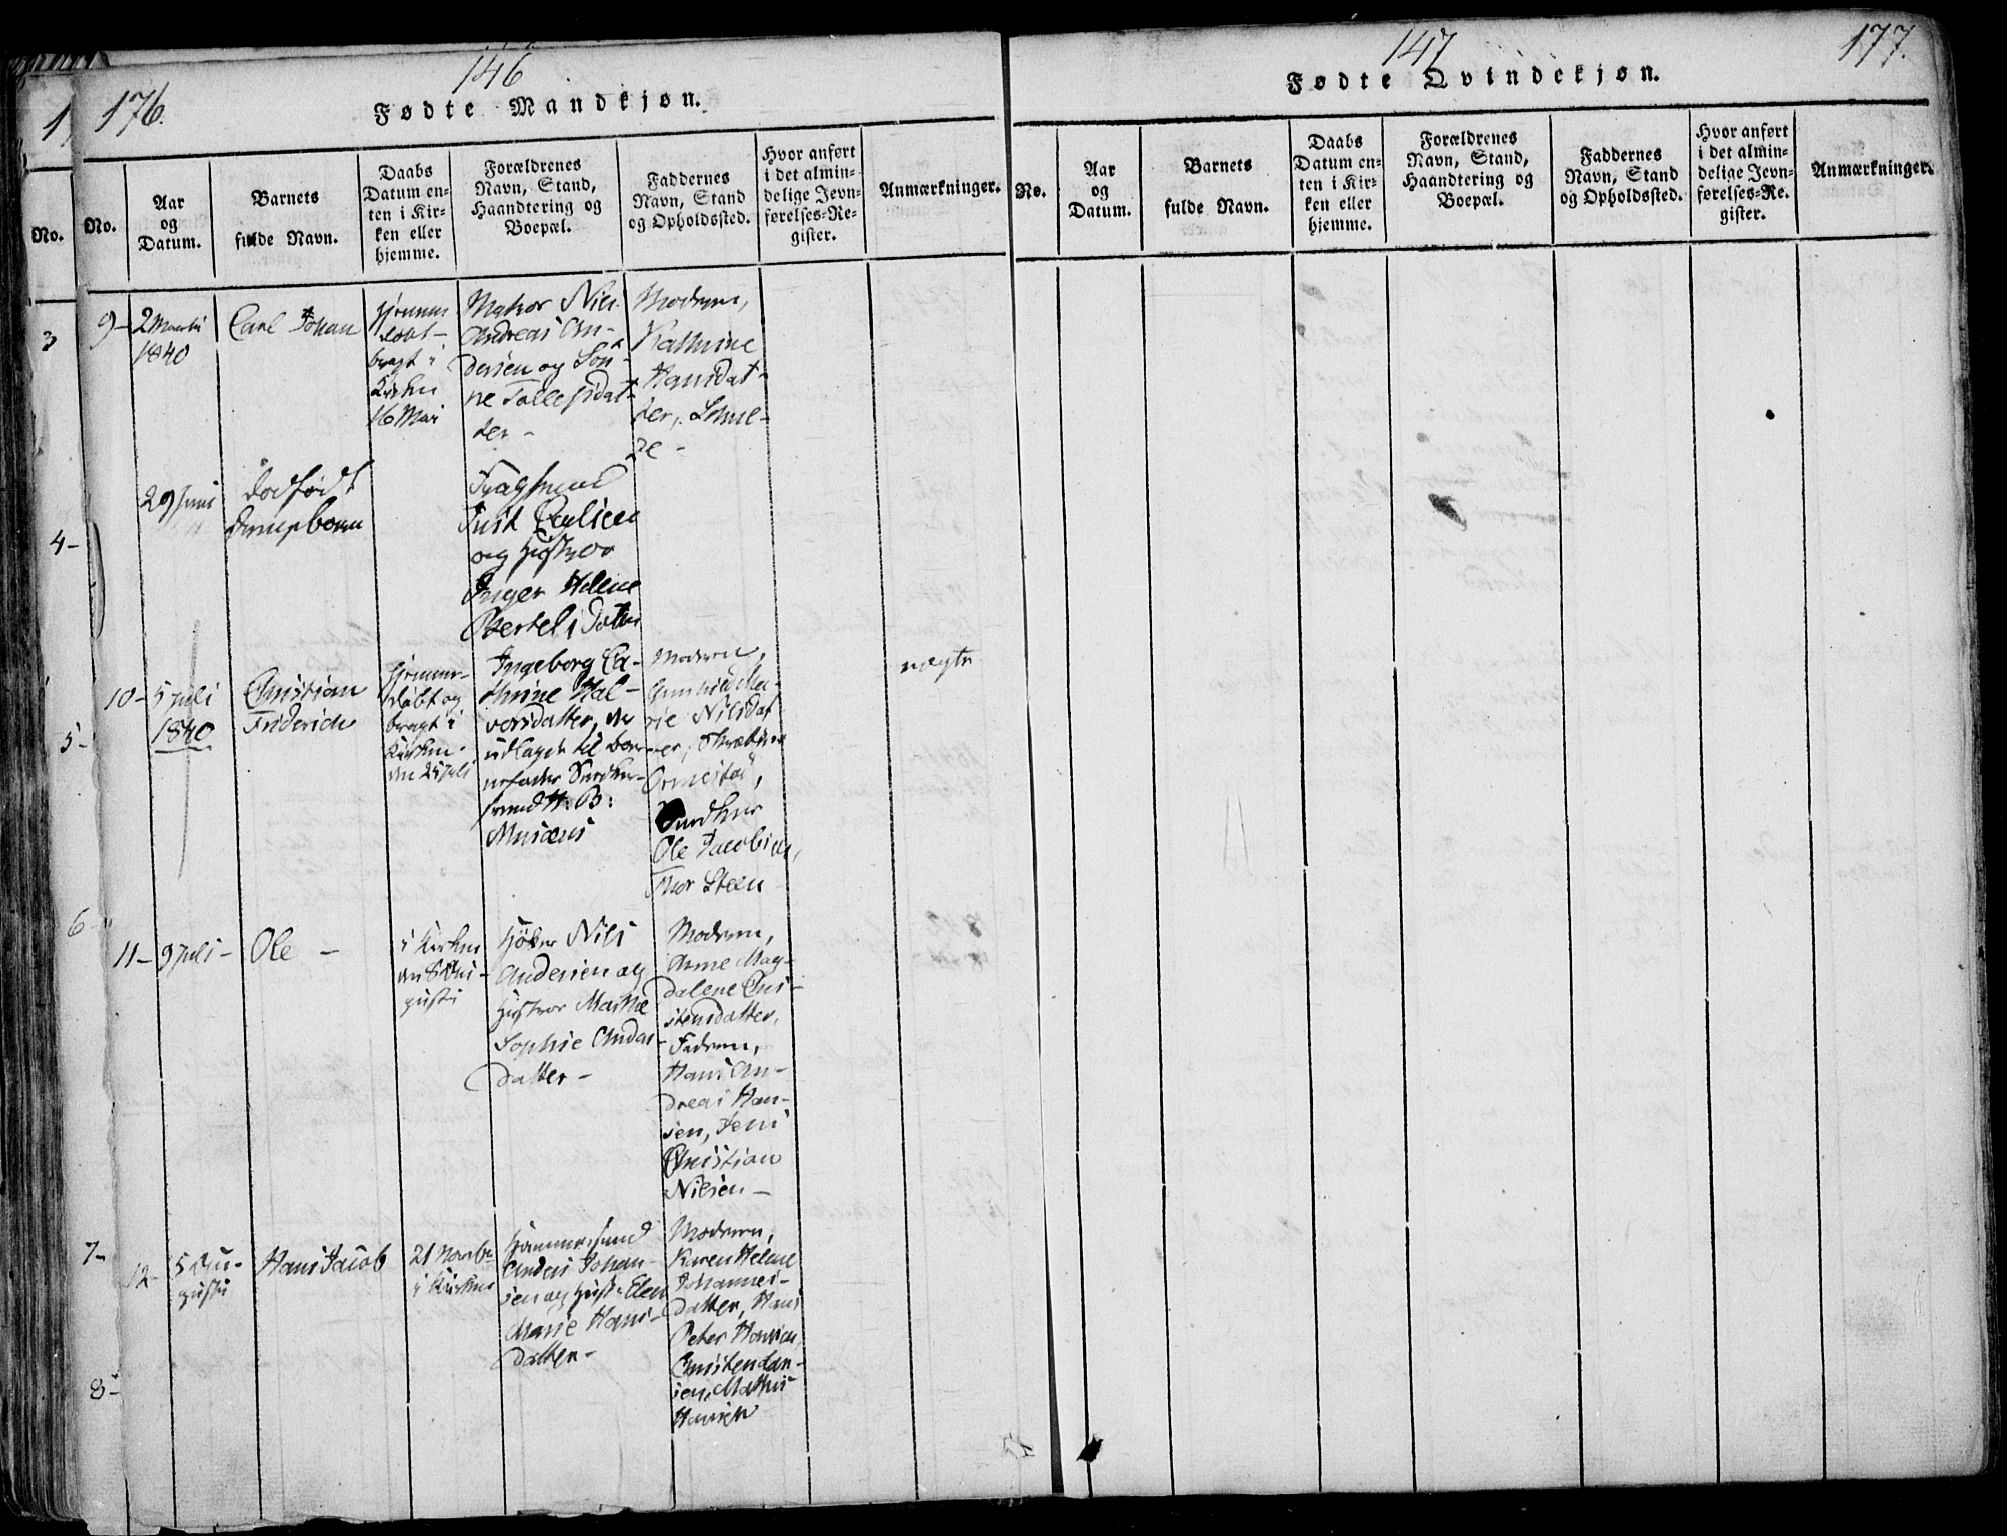 146
176.
Fødte Mandkjøn.
No.
Aar
og
Datum.
Barnets
fulde Navn.
Daabs
Datum en-
ten i Kir-
ken eller
hjemme.
Forældrenes
Navn, Stand,
Haandtering og
Boepæl.
Faddernes
Navn, Stand
og Opholdssted.
Hvor anført
i det almin-
delige Jevn-
førelses-Re-
gister.
Anmærkninger.
9-
2 Martii
1840
Carl Johan
hjemme
døbt -
bragt i
Kirken
16 Mai
Matros Niels
Andreas An-
dersen og
ne Tollefsdat-
ter -
Modren,
Kathrine
Hansdat-
ter,
29 Juni
dødfødt
drengebarn
Just
og Hustrue
Inger Helene
Bertelsdatter
10-
5 Juli
1840
Christian
Friderich
hjemme-
døbt og
bragt i
Kirken
den 25 Juli
Ingeborg Ca-
thrine Hal-
vorsdatter, der
udlagde til bar-
nefader
H: B:
Musæus
Modren,
Gunhild Ma-
rie Nilsdat-
ter,
Snedker
Ole Jacobsen,
Thor Steen
uegte
11-
9 Juli -
Ole -
i Kirken
den 8 Au-
gusti
Nils
Andersen og
Hustroe Marthe
Sophie Anders-
datter -
Modren,
Anne Mag-
dalene Chri-
stensdatter,
Fadren,
Hans An-
dreas Han-
sen, Jens
Christian
Nilsen -
12-
5 Au-
gusti
Hans Jacob
21 Novbr
i Kirken
Tømmermand
Anders Johan-
sen og Hustr: Elen
Marie Hans-
datter -
Modren,
Karen Helene
Johannes-
datter, Hans
Peter Hansen
Christen Lar-
sen, Mathis
Hansen
1
No.
3
4-
5-
6-
7-
8-
147
177.
Fødte Qvindekjøn.
No.
Aar
og
Datum.
Barnets
fulde Navn.
Daabs
Datum en-
ten i Kir-
ken eller
hjemme.
Forældrenes
Navn, Stand,
Haandtering og
Boepæl.
Faddernes
Navn, Stand
og Opholdssted.
Hvor anført
i det almin-
delige Jevn-
førelses-Re-
gister.
Anmærkninger.